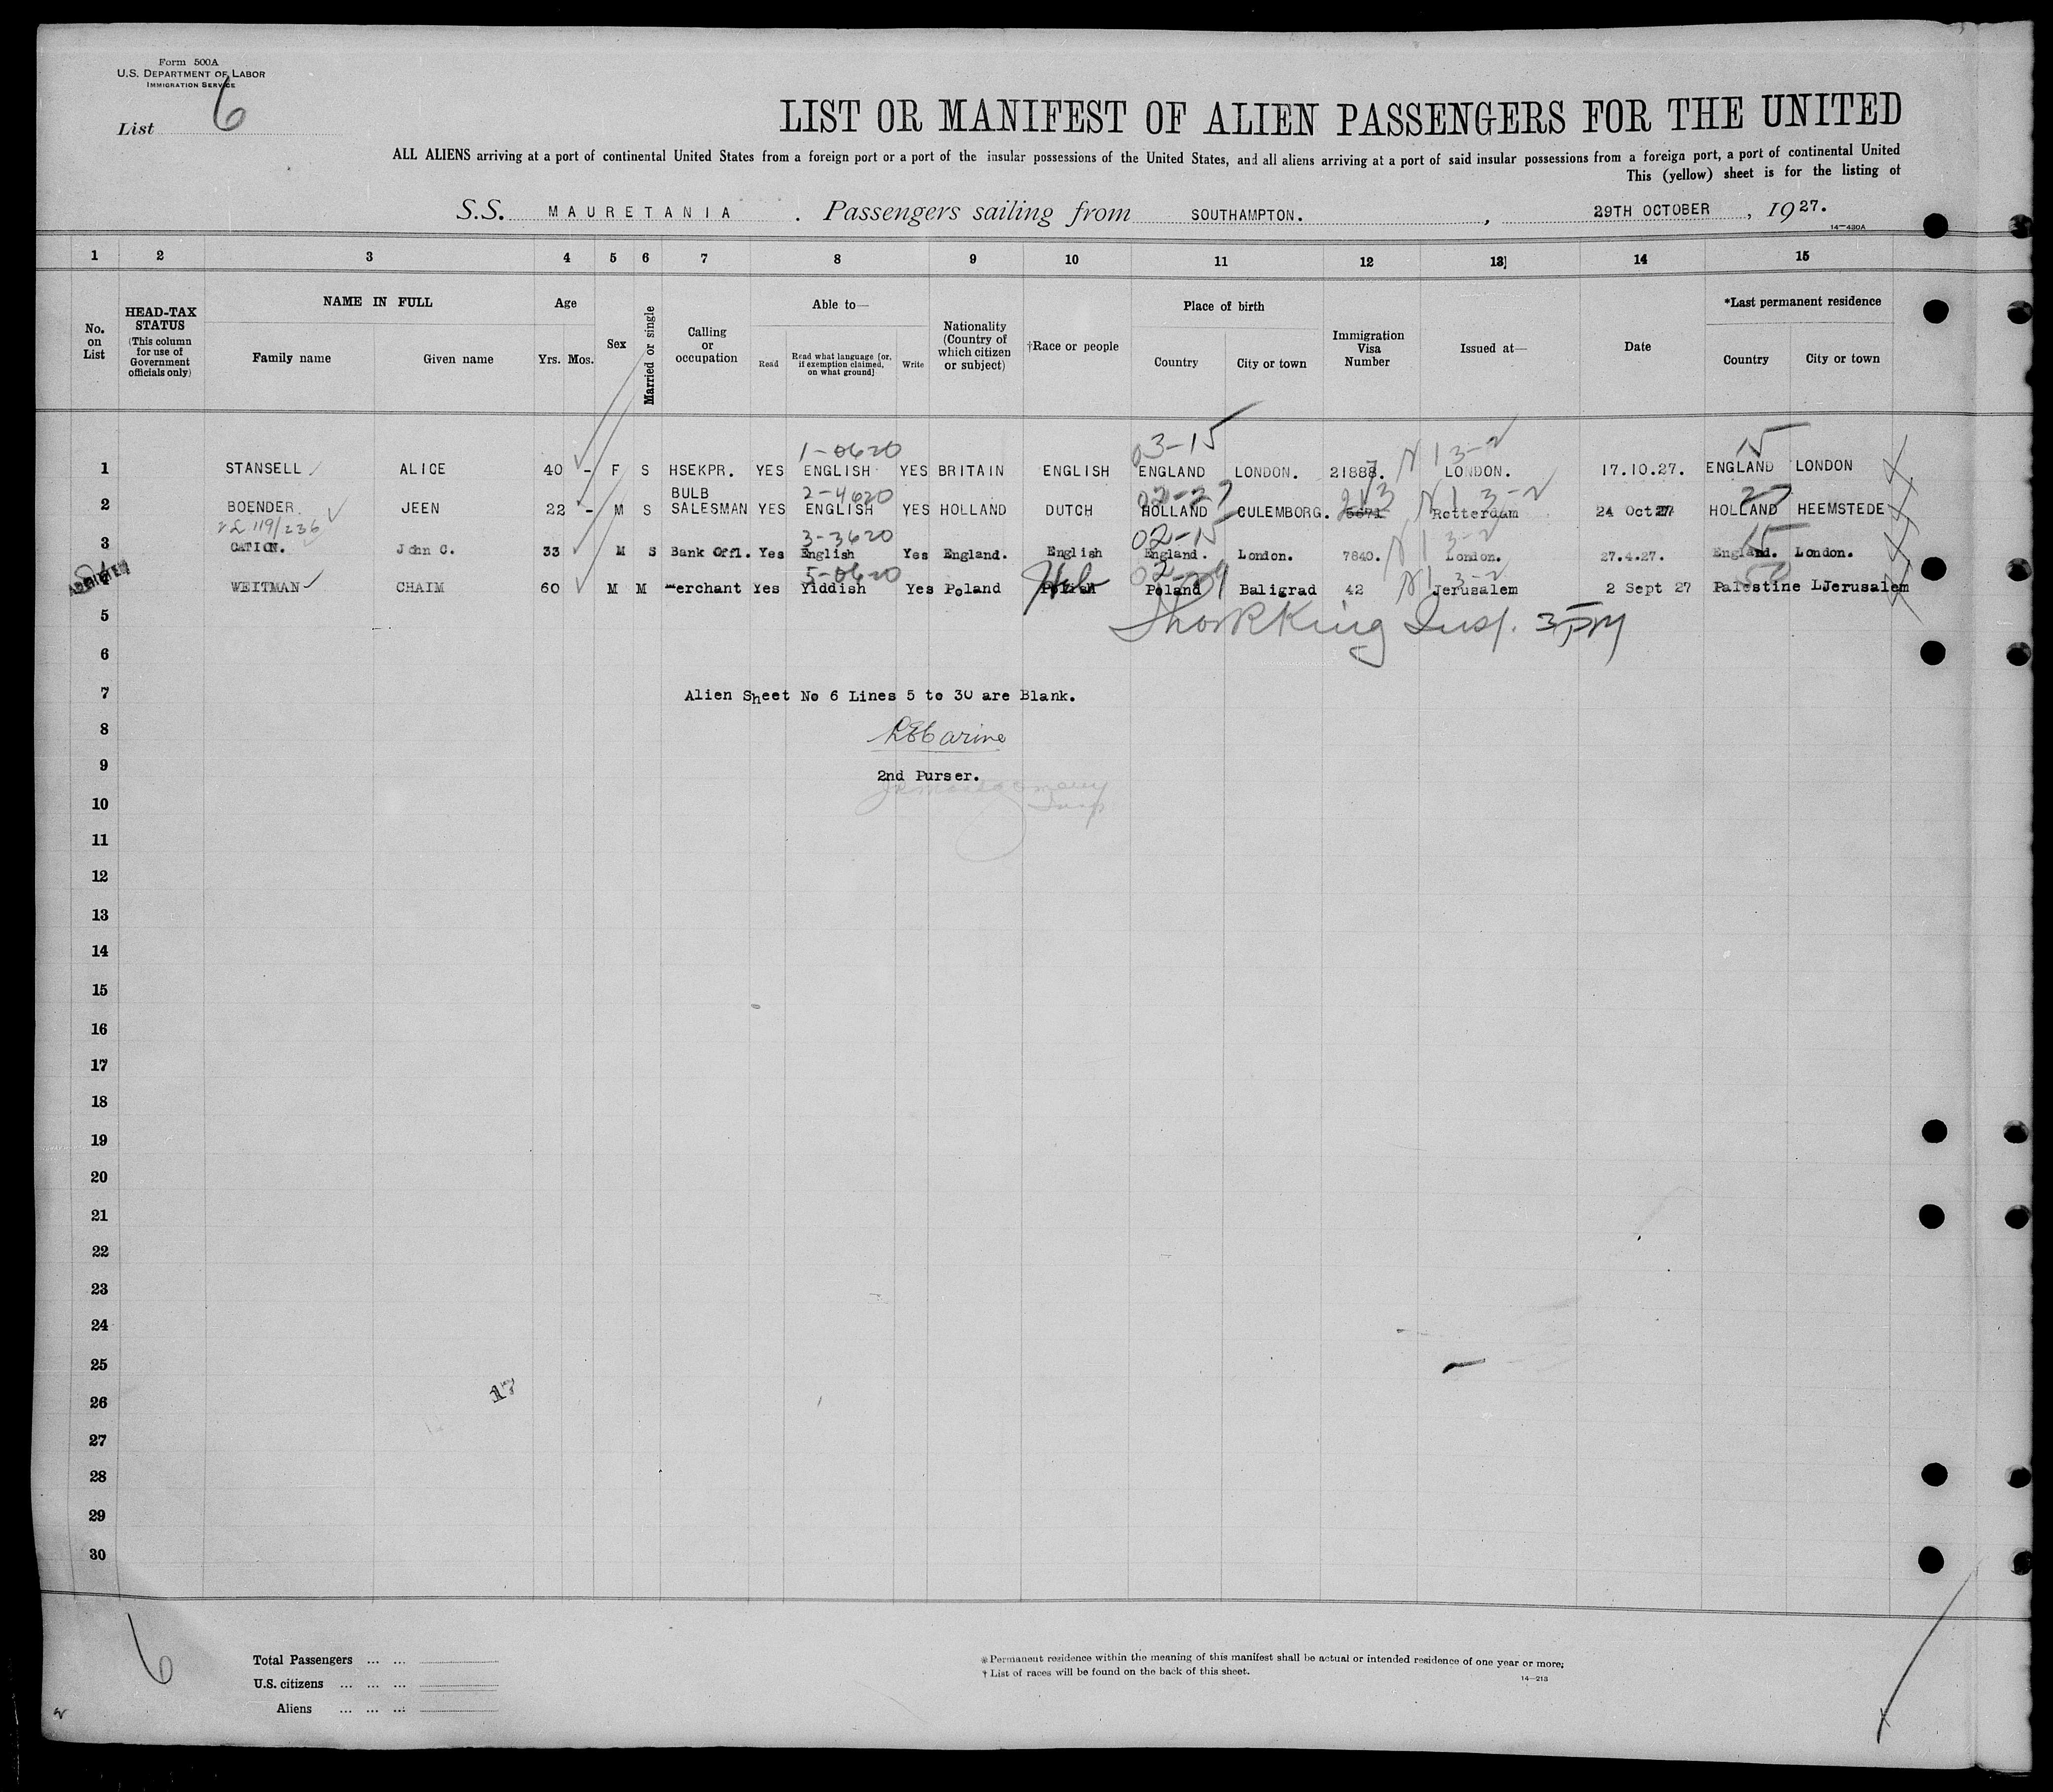 Form 500A
U.S. DEPARTMENT OF LABOR
IMMIGRATION SERVICE
List 6
LIST OR MANIFEST OF ALIEN PASSENGERS FOR THE UNITED
ALL ALIENS arriving at a port of continental United States from a foreign port or a port of the insular possessions of the United States, and all aliens arriving at a port of said insular possessions from a foreign port, a port of continental United
This (yellow) sheet is for the listing of
S.S. MAURETANIA. Passengers sailing from SOUTHAMPTON., 29TH OCTOBER, 1927.
14-430A
1 2 3 4 5 6 7 8 9 10 11 12 13] 14 15
No. on List
HEAD-TAX STATUS (This column for use of Government officials only)
NAME IN FULL
Family name Given name
Age
Yrs. Mos.
Sex
Married or single
Calling or occupation
Able to—
Read Read what language [or, if exemption claimed, on what ground] Write
Nationality (Country of which citizen or subject)
†Race or people
Place of birth
Country City or town
Immigration Visa Number
Issued at—
Date
*Last permanent residence
Country City or town
1-0620 03-15 N 1 3-2 15
1 STANSELL ALICE 40 - F S HSEKPR. YES ENGLISH YES BRITAIN ENGLISH ENGLAND LONDON. LONDON. 17.10.27. ENGLAND LONDON
BULB 2-4620 02-27 213 N 1 3-2 27
2 BOENDER JEEN 22 - M S SALESMAN YES ENGLISH YES HOLLAND DUTCH HOLLAND CULEMBORG. 5671 Rotterdam 24 Oct 27 HOLLAND HEEMSTEDE
119/236 3-3620 02-15 N 1 3-2 15
3 CATION. John C. 33 M S Bank Offl. Yes English Yes England. English England. London. 7840. London. 27.4.27. England. London.
ADMITTED 5-0620 Heb N 1 3-2
WEITMAN CHAIM 60 M M erchant Yes Yiddish Yes Poland Polish Poland Baligrad 42 Jerusalem 2 Sept 27 Palestine LJerusalem
5 Insp. 3 PM
6
7 Alien Sheet No 6 Lines 5 to 30 are Blank.
8
9 2nd Purser.
10 Insp
11
12
13
14
15
16
17
18
19
20
21
22
23
24
25
17
26
27
28
29
30
6
Total Passengers ... ...
U.S. citizens ... ... ...
Aliens ... ... ...
* Permanent residence within the meaning of this manifest shall be actual or intended residence of one year or more;
† List of races will be found on the back of this sheet.
14-213